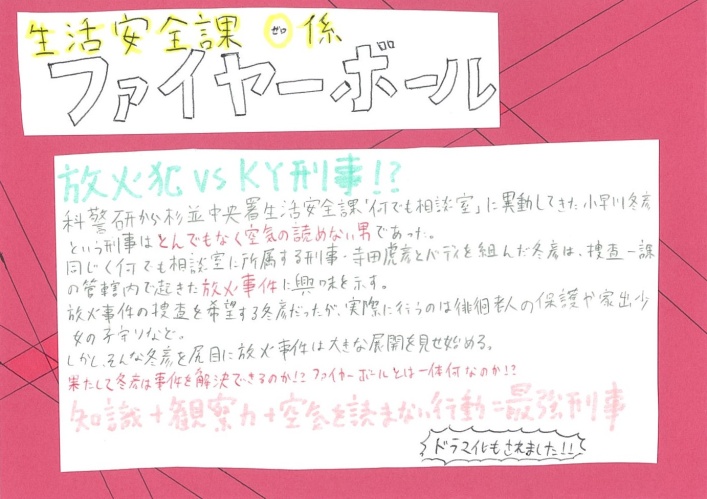 生活安全課 0係
ゼロ
ファイヤーボール
放火犯 vs KY刑事!?
科警研から杉並中央署生活安全課「何でも相談室」に異動してきた小早川冬彦
という刑事はとんでもなく空気の読めない男であった。
同じく何でも相談室に所属する刑事・寺田虎彦とバディを組んだ冬彦は、捜査一課
の管轄内で起きた放火事件に興味を示す。
放火事件の捜査を希望する冬彦だったが、実際に行うのは徘徊老人の保護や家出少
女の子守りなど。
しかし、そんな冬彦を尻目に放火事件は大きな展開を見せ始める。
果たして冬彦は事件を解決できるのか!? ファイヤーボールとは一体何なのか!?
知識+観察力+空気を読まない行動=最強刑事
ドラマ化もされました!!